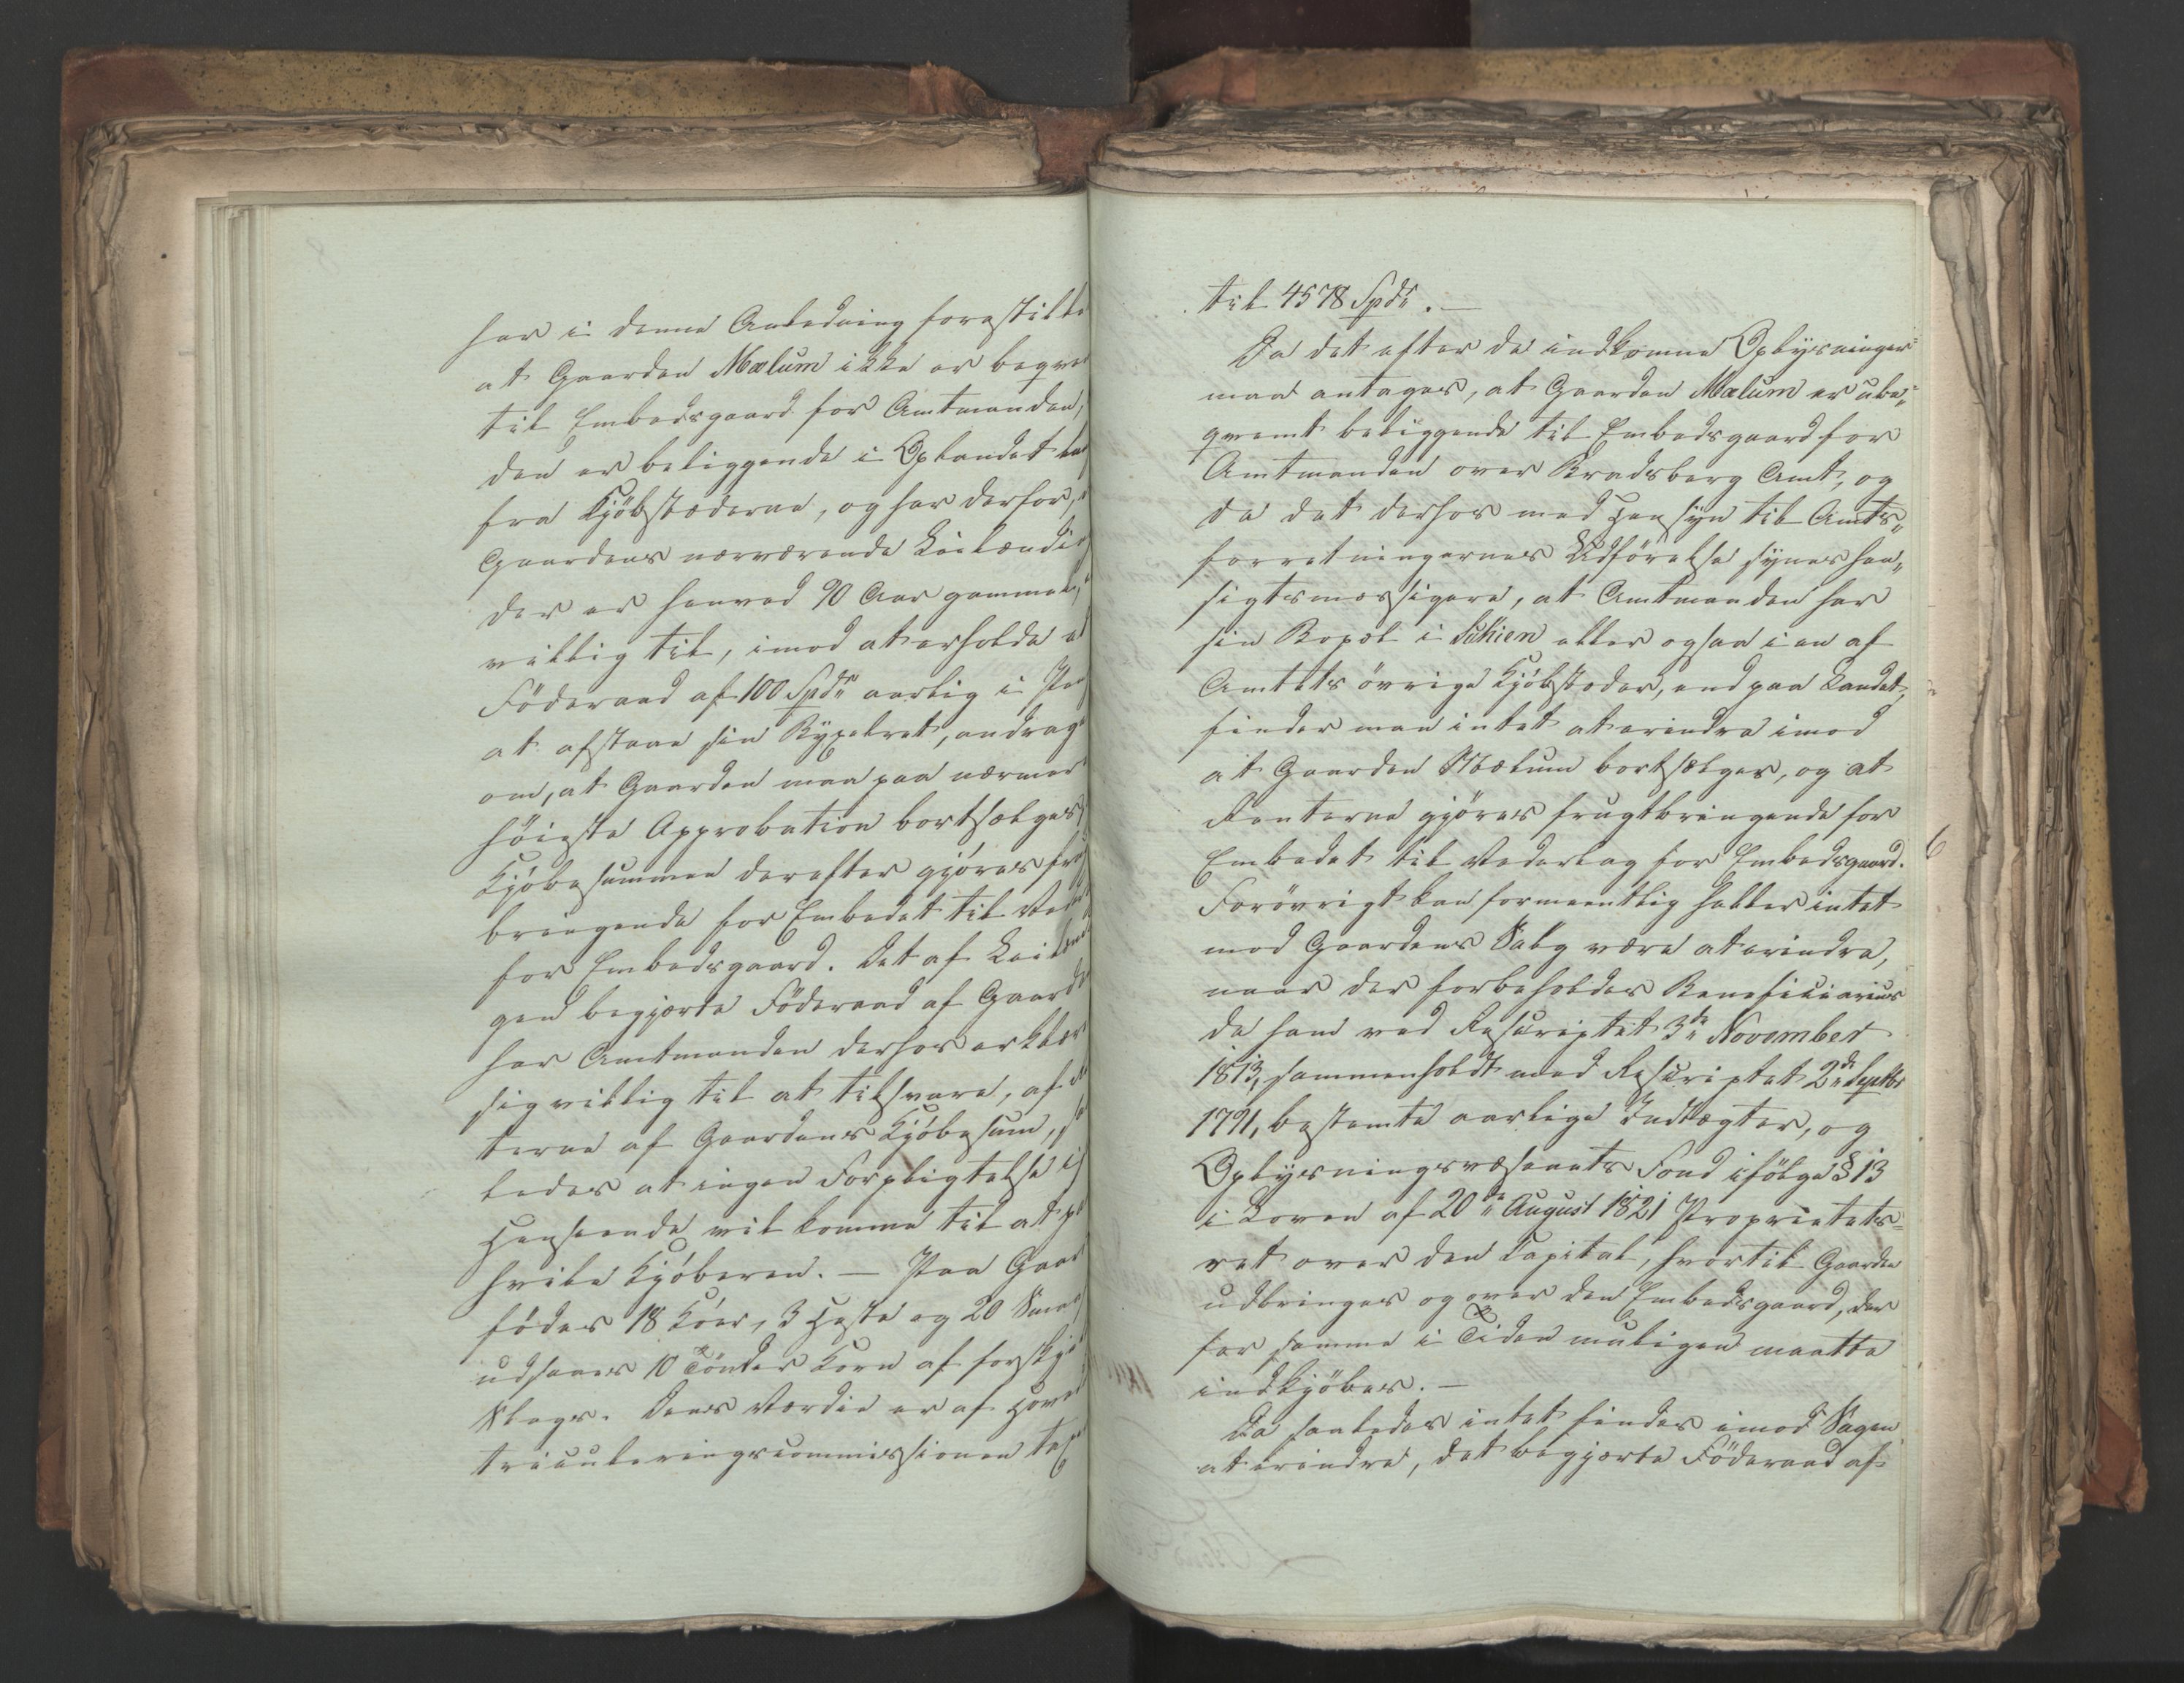 har i denne Anledning forestillet
at Gaarden Mælum ikke er beqvem
til Embedsgaard for Amtmanden,
den er beliggende i Oplandet
fra Kjöbstæderne, og har derfor,
Gaardens nærværende Leilænding
der er henved 90 Aar gammel,
villig til, imod at erholde et
Föderaad af 100 Spdr aarlig i
at afstaae sin Byxelret, andraget
om, at Gaarden maa paa nærmere
höieste Approbation bortsælges
Kjöbesummen derefter gjöres frugt
bringende for Embedet til Veder
for Embedsgaard. Det af Leilæn
gen begjærte Föderaad af Gaarden
har Amtmanden derhos erklæret
sig villig til at tilsvare, af
terne af Gaardens Kjöbesum,
ledes at ingen Forpligtelse i
Henseende vil komme til at paa
hvile Kjöberen. — Paa Gaarden
födes 18 Köer, 3 Heste og 20 Smaa
udsaaes 10 Tönder Korn af forskjel
Slags. Dens Værdie er af Hovedma
triculeringscommissionen
til 4578 Spdr. —
Da det efter de indkomne Oplysninger
maa antages, at Gaarden Mælum er ube„
qvemt beliggende til Embedsgaard for
Amtmanden over Bradsberg Amt, og
da det derhos med Hensyn til Amts„
forretningernes Udförelse synes hen„
sigtsmæssigere, at Amtmanden har
sin Bopæl i Schien eller ogsaa i en af
Amtets övrige Kjöbstæder, end paa Landet,
finder man intet at erindre imod
at Gaarden Mælum bortsælges, og at
Renterne gjöres frugtbringende for
Embedet til Vederlag for Embedsgaard.
Forövrigt kan formeentlig heller intet
mod Gaardens Salg være at erindre,
naar der forbeholdes Beneficiarius
de ham ved Rescriptet 3de November
1813, sammenholdt med Rescriptet 2de Septbr
1791, bestemte aarlige Indtægter, og
Oplysningsvæsenets Fond ifölge § 13
i Loven af 20de August 1821 Proprietets=
ret over den Capital, hvortil Gaarden
udbringes og over den Embedsgaard, der
for samme i Tiden muligen maatte
indkjöbes. —
Da saaledes intet findes imod Sagen
at erindre, det begjærte Föderaad af